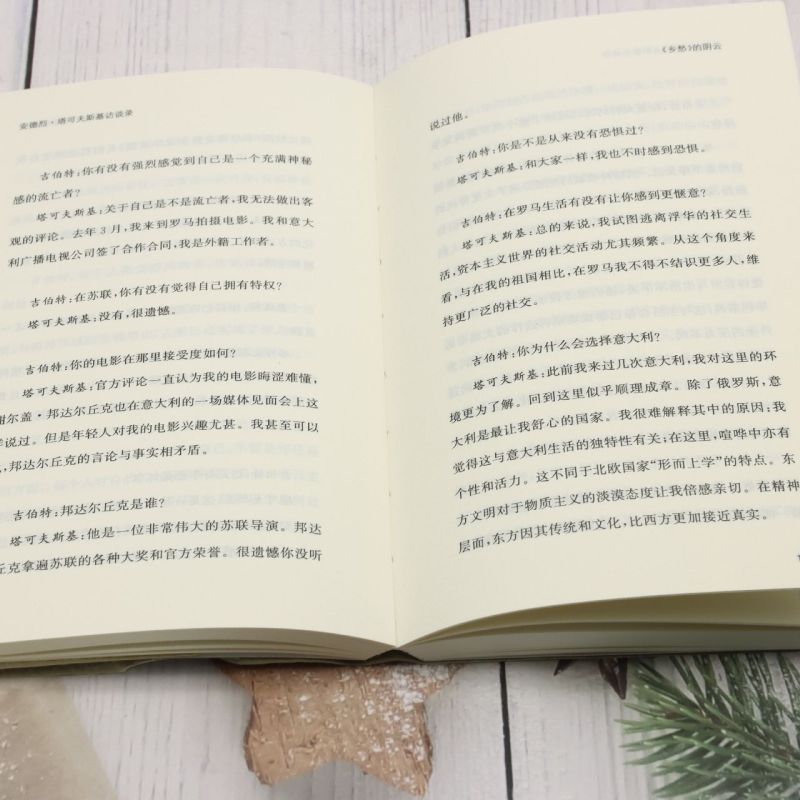 安德烈·塔可夫斯基访谈录
吉伯特:你有没有强烈感觉到自己是一个充满神秘
感的流亡者?
塔可夫斯基:关于自己是不是流亡者,我无法做出客
观的评论。去年3月,我来到罗马拍摄电影。我和意大
利广播电视公司签了合作合同,我是外籍工作者。
吉伯特:在苏联,你有没有觉得自己拥有特权?
塔可夫斯基:没有,很遗憾。
吉伯特:你的电影在那里接受度如何?
塔可夫斯基:官方评论一直认为我的电影晦涩难懂,
谢尔盖·邦达尔丘克也在意大利的一场媒体见面会上这
说过。但是年轻人对我的电影兴趣尤甚。我甚至可以
,邦达尔丘克的言论与事实相矛盾。
吉伯特:邦达尔丘克是谁?
塔可夫斯基:他是一位非常伟大的苏联导演。邦达
丘克拿遍苏联的各种大奖和官方荣誉。很遗憾你没听
《乡愁》的阴云
说过他。
吉伯特:你是不是从来没有恐惧过?
塔可夫斯基:和大家一样,我也不时感到恐惧。
吉伯特:在罗马生活有没有让你感到更惬意?
塔可夫斯基:总的来说,我试图逃离浮华的社交生
活,资本主义世界的社交活动尤其频繁。从这个角度来
看,与在我的祖国相比,在罗马我不得不结识更多人,维
持更广泛的社交。
吉伯特:你为什么会选择意大利?
塔可夫斯基:此前我来过几次意大利,我对这里的环
境更为了解。回到这里似乎顺理成章。除了俄罗斯,意
大利是最让我舒心的国家。我很难解释其中的原因;我
觉得这与意大利生活的独特性有关;在这里,喧哗中亦有
个性和活力。这不同于北欧国家“形而上学”的特点。东
方文明对于物质主义的淡漠态度让我倍感亲切。在精神
层面,东方因其传统和文化,比西方更加接近真实。